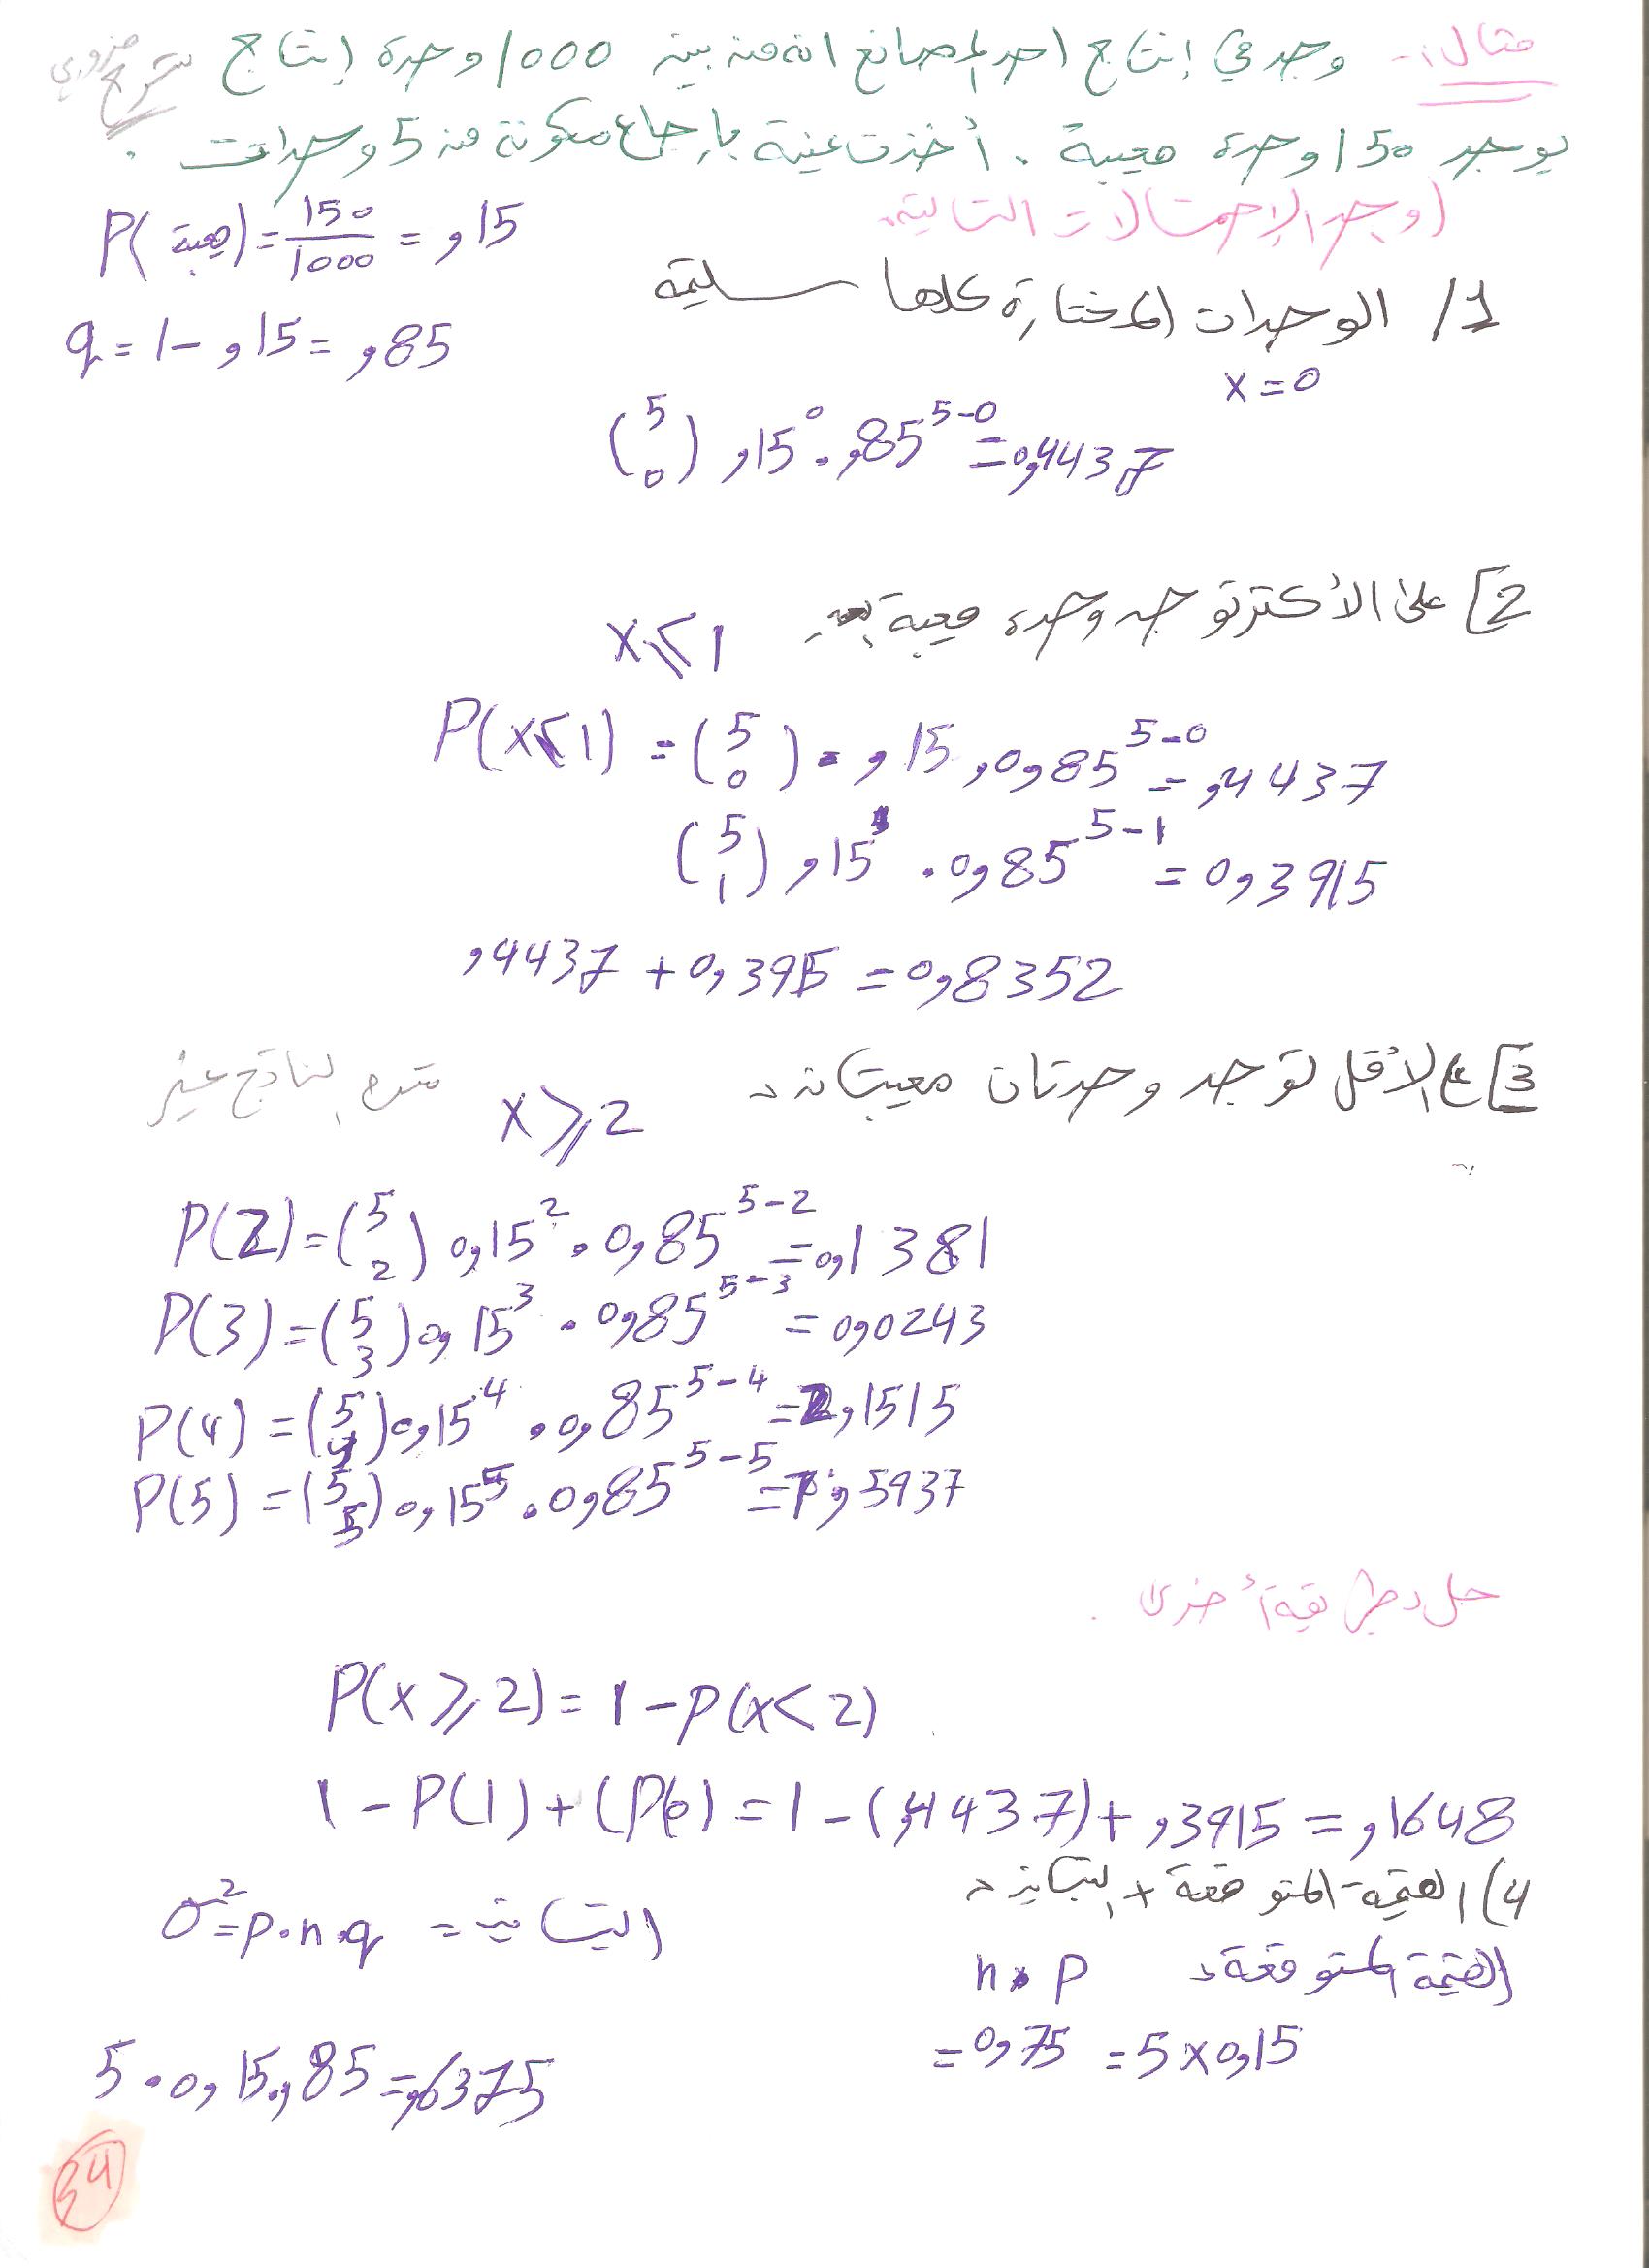 مثال :- وجد في إنتاج احد المصانع انه من بين 1000 وحدة إنتاج
يوجد 150 وحدة معيبة . أخذت عينة بإرجاع مكونة من 5 وحدات .
اوجد الإحتمالات التالية:
P(معيبة) = 150/1000 = ,15
1/ الوحدات المختارة كلها سليمة
q = 1 - ,15 = ,85
x = 0
(5 0) ,15^0 . ,85^5-0 = 0,4437
2] على الأكثر توجد وحدة معيبة
x ⩽ 1
P(x⩽1) = (5 0) . ,15 , 0,85^5-0 = ,4437
(5 1) ,15^1 . 0,85^5-1 = 0,3915
,4437 + 0,3915 = 0,8352
3] ع الأقل توجد وحدتان معيبتان
x ⩾ 2
P(2) = (5 2) 0,15^2 . 0,85^5-2 = 0,1381
P(3) = (5 3) 0,15^3 . 0,85^5-3 = 0,0243
P(4) = (5 4) 0,15^4 . 0,85^5-4 = 2,1515
P(5) = (5 5) 0,15^5 . 0,85^5-5 = 7,5937
حل بطريقة أخرى .
P(x ⩾ 2) = 1 - P(x < 2)
1 - P(1) + (P0) = 1 - (,4437) + ,3915 = ,1648
4) القيمة المتوقعة + التباين
التباين = σ^2 = p.n.q
القيمة المتوقعة n . p
= 0,75 = 5 x 0,15
5 . 0,15 . ,85 = ,6375
34